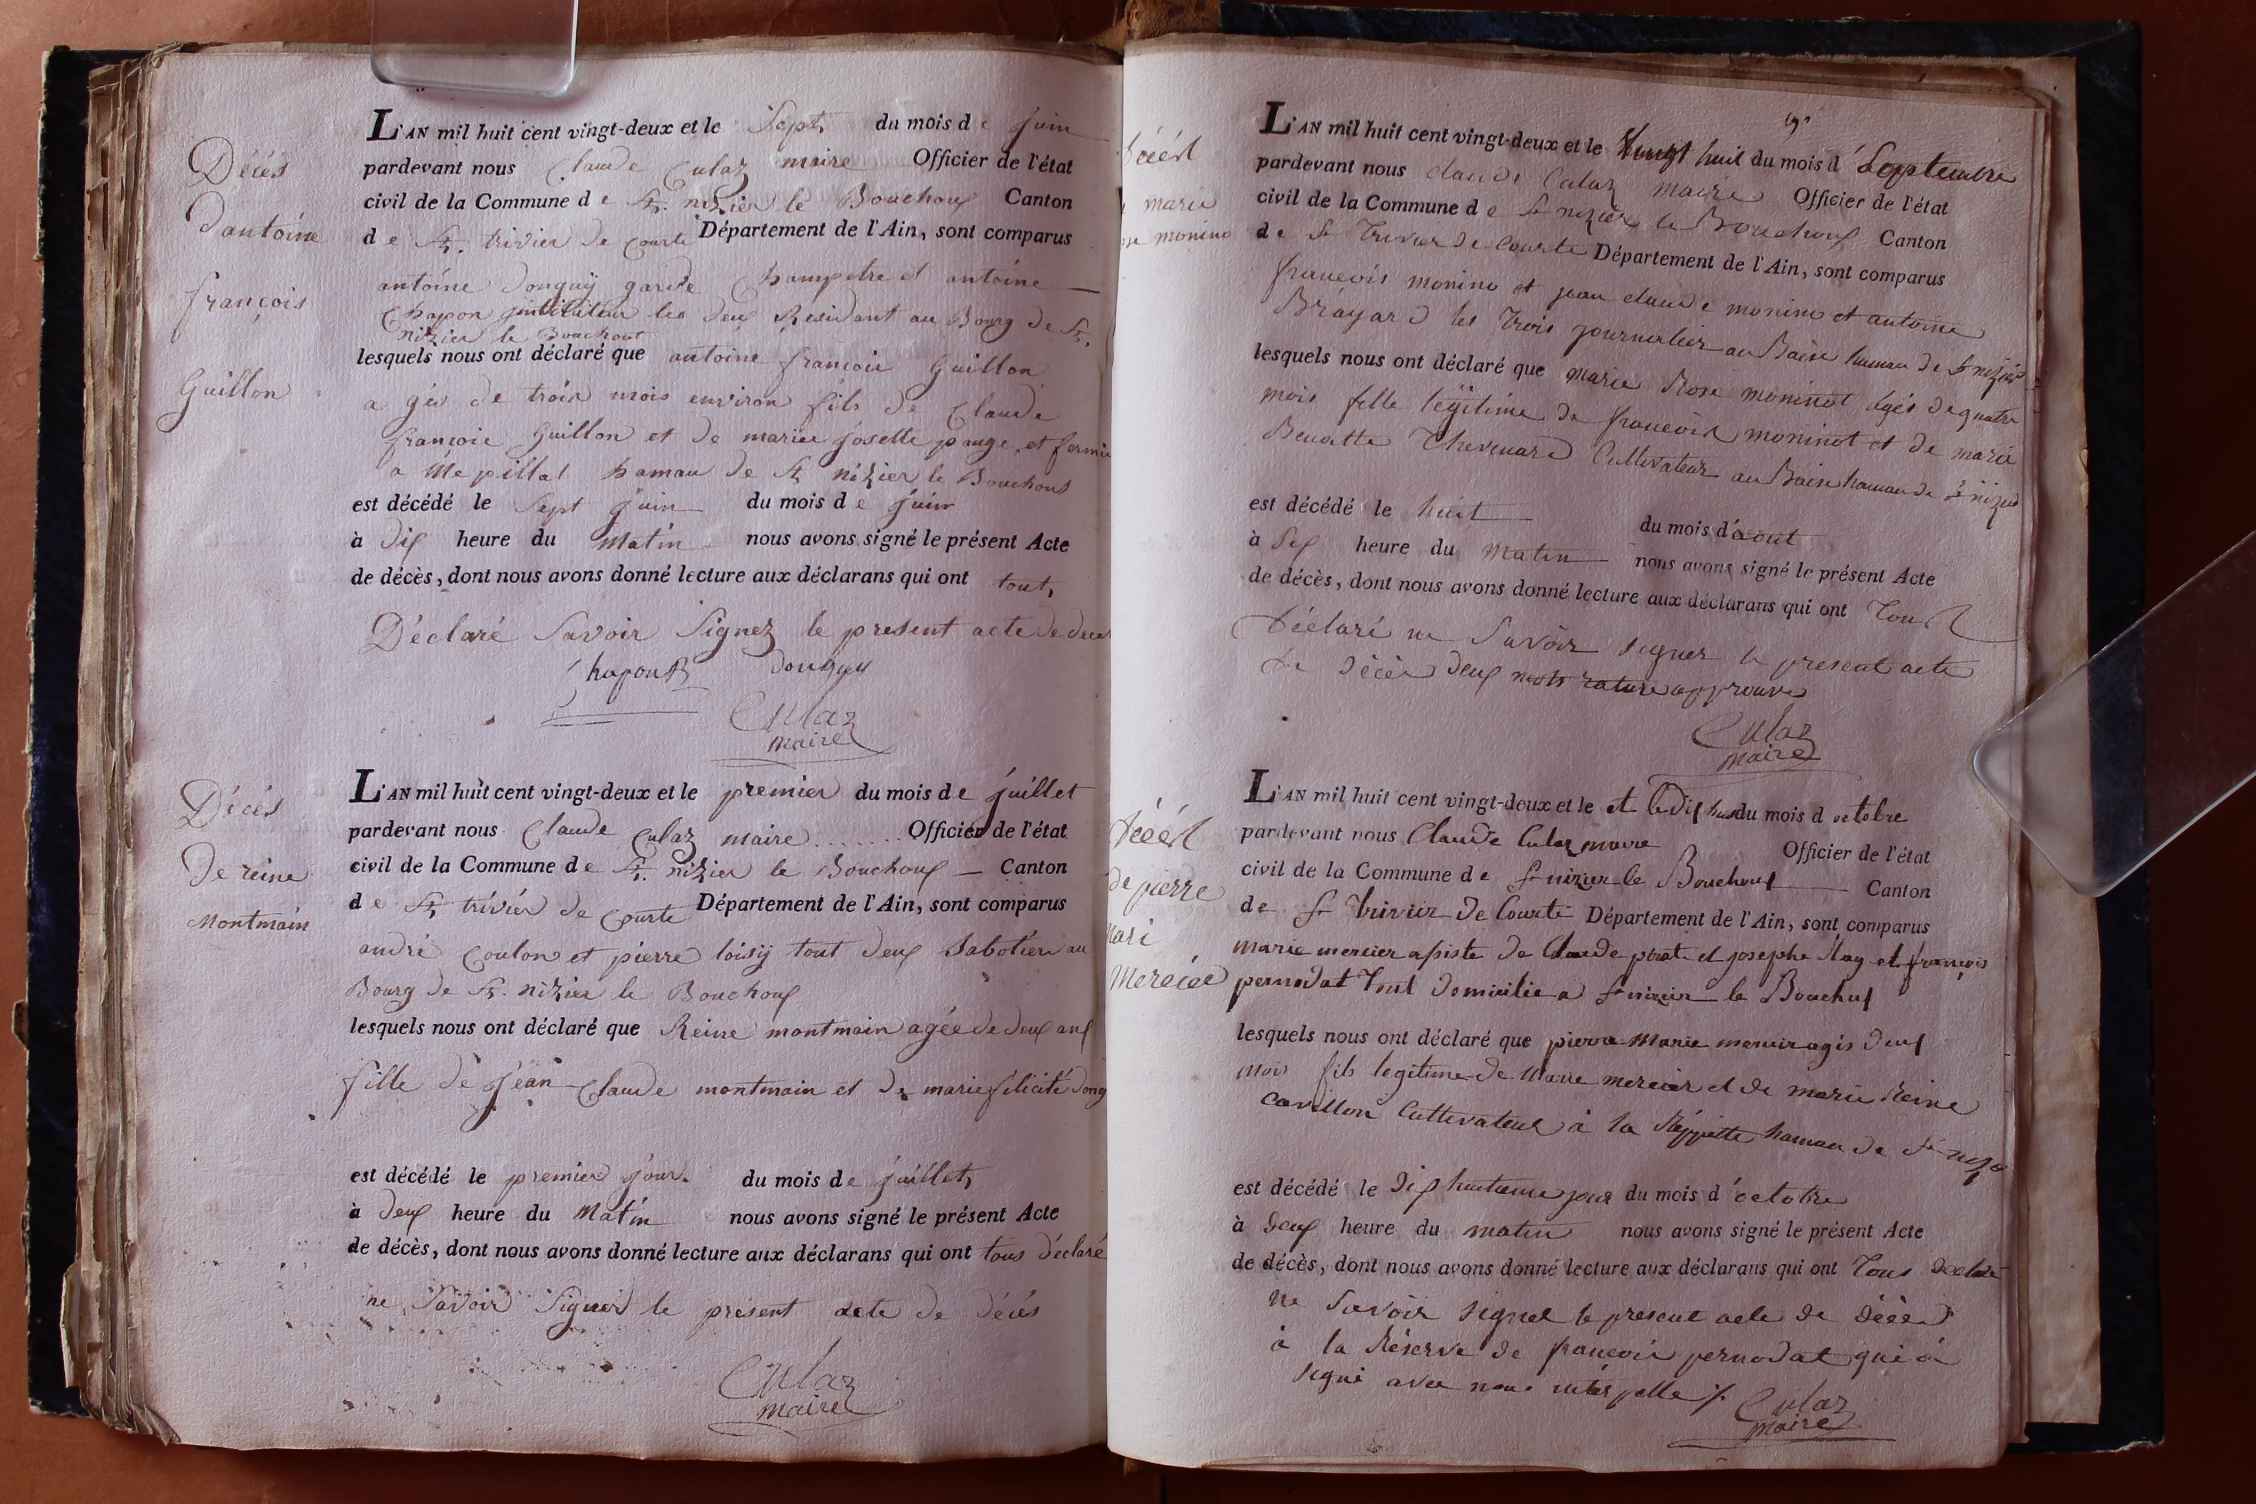 Décés
d'antoine
françois
Guillon
L'AN mil huit cent vingt-deux et le Sept du mois de Juin
pardevant nous Claude Culaz maire Officier de l'état
civil de la Commune de St. nizier le Bouchoux Canton
de St. trivier de Courte Département de l'Ain, sont comparus
antoine Donguy garde Champetre et antoine
Chapon instituteur les deux Résidant au Bourg de St.
nizier le Bouchoux
lesquels nous ont déclaré que antoine françois Guillon
agés de trois mois environ fils de Claude
françois Guillon et de marie Josette pauge, et fermier
a Mepillat hamau de St nizier le Bouchoux
est décédé le Sept Juin du mois de Juin
à dix heure du matin nous avons signé le présent Acte
de décès, dont nous avons donné lecture aux déclarans qui ont tout
Déclaré Savoir Signez le present acte de deces
Chapon donguy
Culaz
maire
Décés
de reine
Montmain
L'AN mil huit cent vingt-deux et le premier du mois de Juillet
pardevant nous Claude Culaz maire ....... Officier de l'état
civil de la Commune de St. nizier le Bouchoux Canton
de St. trivier de Courte Département de l'Ain, sont comparus
andré Coulon et pierre loisÿ tout deux Sabotier au
Bourg de St. nizier le Bouchoux
lesquels nous ont déclaré que Reine montmain agée de deux ans
fille de Jean Claude montmain et de marie felicité dong
est décédé le premier Jour du mois de Juillet
à deux heure du Matin nous avons signé le présent Acte
de décès, dont nous avons donné lecture aux déclarans qui ont tous déclaré
ne Savoir Signer le présent acte de décés
Culaz
maire
Décét
marie
monino
L'AN mil huit cent vingt-deux et le huit du mois d Septembre
pardevant nous claude Culaz maire Officier de l'état
civil de la Commune de St nizier le Bouchoux Canton
de St Trivier de Courte Département de l'Ain, sont comparus
francois monino et jean claude monino et antoine
Bráyard les trois journalier au Baise hamau de St nizier
lesquels nous ont déclaré que marie Rose moninot agés de quatre
mois fille legitime de francois moninot et de marie
Benoitte Thevenard Cultivateur au Baise hamau de St nizier
est décédé le huit du mois d'aout
à Six heure du matin nous avons signé le présent Acte
de décès, dont nous avons donné lecture aux déclarans qui ont Tout
Déclaré ne Savoir signer le present acte
de décès deux mots rature approuvé
Culaz
maire
Décét
de pierre
mari
Mercier
L'AN mil huit cent vingt-deux et le et le dix huit du mois d octobre
pardevant nous Claude Culaz maire Officier de l'état
civil de la Commune de St nizier le Bouchoux Canton
de St Trivier de Courte Département de l'Ain, sont comparus
marie mercier asisté de Claude et josephe et françois
pernodat Tout Domicilie a St nizier le Bouchux
lesquels nous ont déclaré que pierre Marie mercier agés deux
mois fils legitime de Marie mercier et de marie Reine
Cavillon Cultivateur à la hamau de St nizier
est décédé le Dix huitieme jour du mois d'octobre
à deux heure du matin nous avons signé le présent Acte
de décès, dont nous avons donné lecture aux déclarans qui ont Tous Déclaré
ne Savoir signer le present acte de décès
à la Réserve de francois pernodat qui à
signé avec nous
Culaz
maire